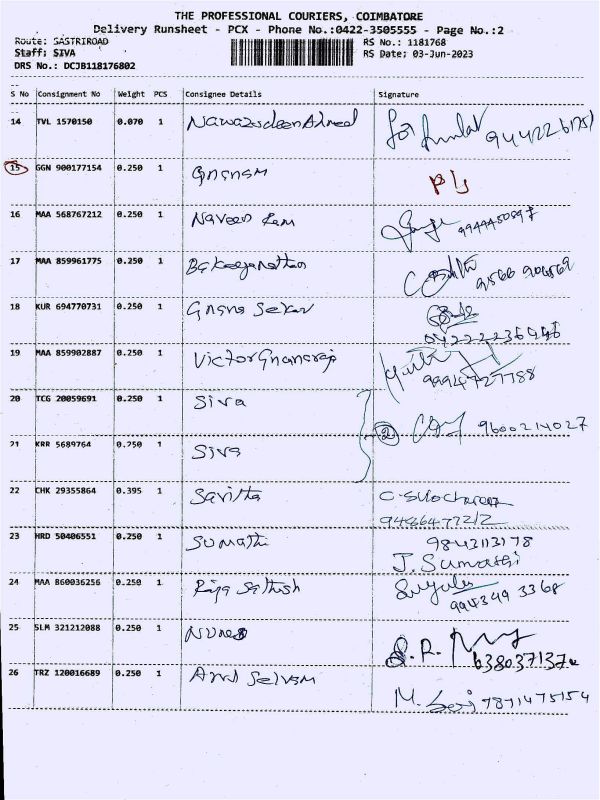 THE PROFESSIONAL COURIERS, COIMBATORE
Delivery Runsheet - PCX - Phone No.:0422-3505555 - Page No.:2
Route: SASTRIROAD RS No.: 1181768
Staff: SIVA RS Date: 03-Jun-2023
DRS No.: DCJB118176802
S No Consignment No Weight PCS Consignee Details Signature
14 TVL 1570150 0.070 1 Nawazudeen Ahmed for
15 GGN 900177154 0.250 1 Gnanam
16 MAA 568767212 0.250 1 Naveen Ram
17 MAA 859961775 0.250 1
18 KUR 694770731 0.250 1 Gnana Sekar
19 MAA 859902887 0.250 1 Victor Gnanaraj
9994727788
20 TCG 20059691 0.250 1 Siva
2 9600214027
21 KRR 5689764 0.250 1 Siva
22 CHK 29355864 0.395 1 Savitha
9486477212
23 HRD 50406551 0.250 1 Sumathi 9843113178
J. Sumathi
24 MAA 860036256 0.250 1 Raja Sathish
994349 3368
25 SLM 321212088 0.250 1
26 TRZ 120016689 0.250 1 Arul Selvam
7871475154